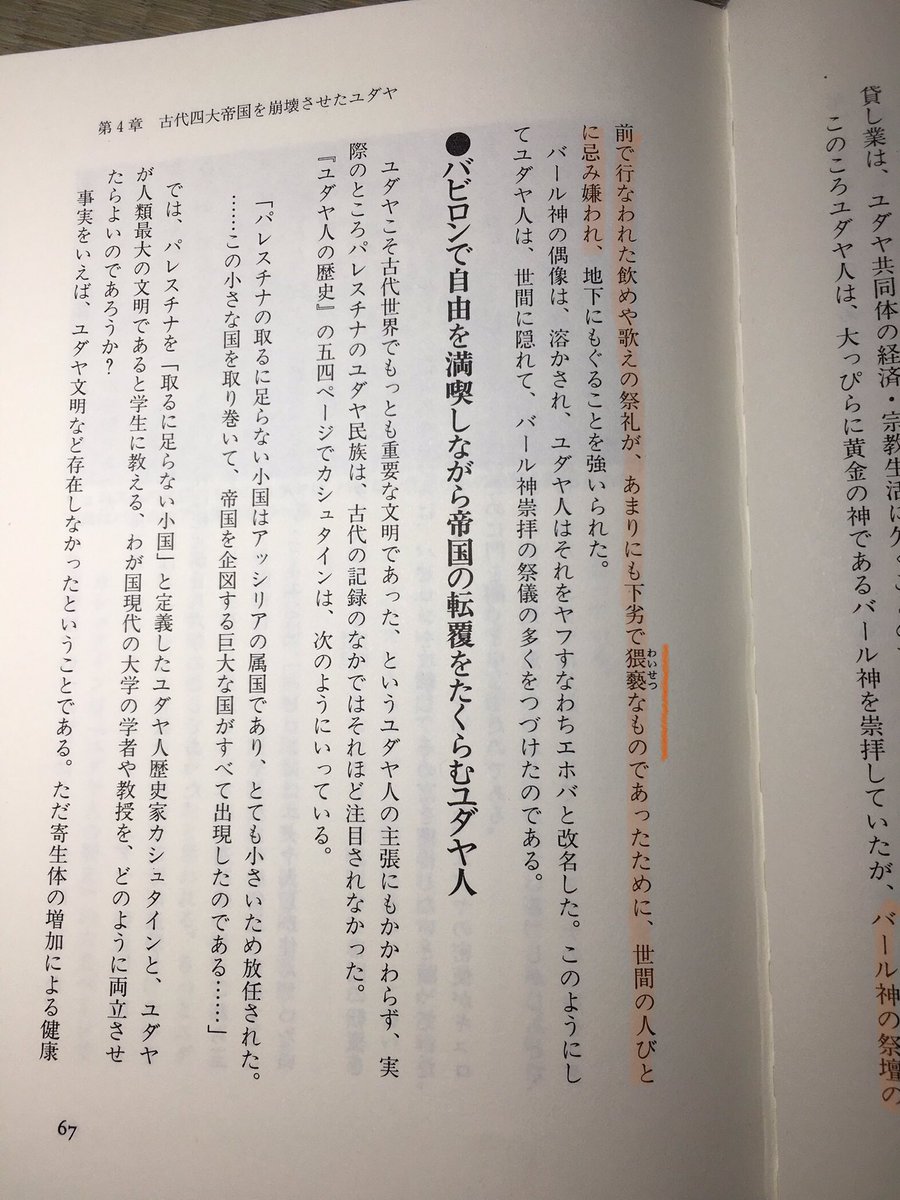 貸し業は、ユダヤ共同体の経済・宗教生活に欠くこの
このころユダヤ人は、大っぴらに黄金の神であるバール神を崇拝していたが、バール神の祭壇の
第4章 古代四大帝国を崩壊させたユダヤ
前で行なわれた飲めや歌えの祭礼が、あまりにも下劣で猥褻なものであったために、世間の人びと
わいせつ
に忌み嫌われ、地下にもぐることを強いられた。
バール神の偶像は、溶かされ、ユダヤ人はそれをヤフすなわちエホバと改名した。このようにし
てユダヤ人は、世間に隠れて、バール神崇拝の祭儀の多くをつづけたのである。
●バビロンで自由を満喫しながら帝国の転覆をたくらむユダヤ人
ユダヤこそ古代世界でもっとも重要な文明であった、というユダヤ人の主張にもかかわらず、実
際のところパレスチナのユダヤ民族は、古代の記録のなかではそれほど注目されなかった。
『ユダヤ人の歴史』の五四ページでカシュタインは、次のようにいっている。
「パレスチナの取るに足らない小国はアッシリアの属国であり、とても小さいため放任された。
……この小さな国を取り巻いて、帝国を企図する巨大な国がすべて出現したのである……」
では、パレスチナを「取るに足らない小国」と定義したユダヤ人歴史家カシュタインと、ユダヤ
が人類最大の文明であると学生に教える、わが国現代の大学の学者や教授を、どのように両立させ
たらよいのであろうか?
事実をいえば、ユダヤ文明など存在しなかったということである。ただ寄生体の増加による健康
67